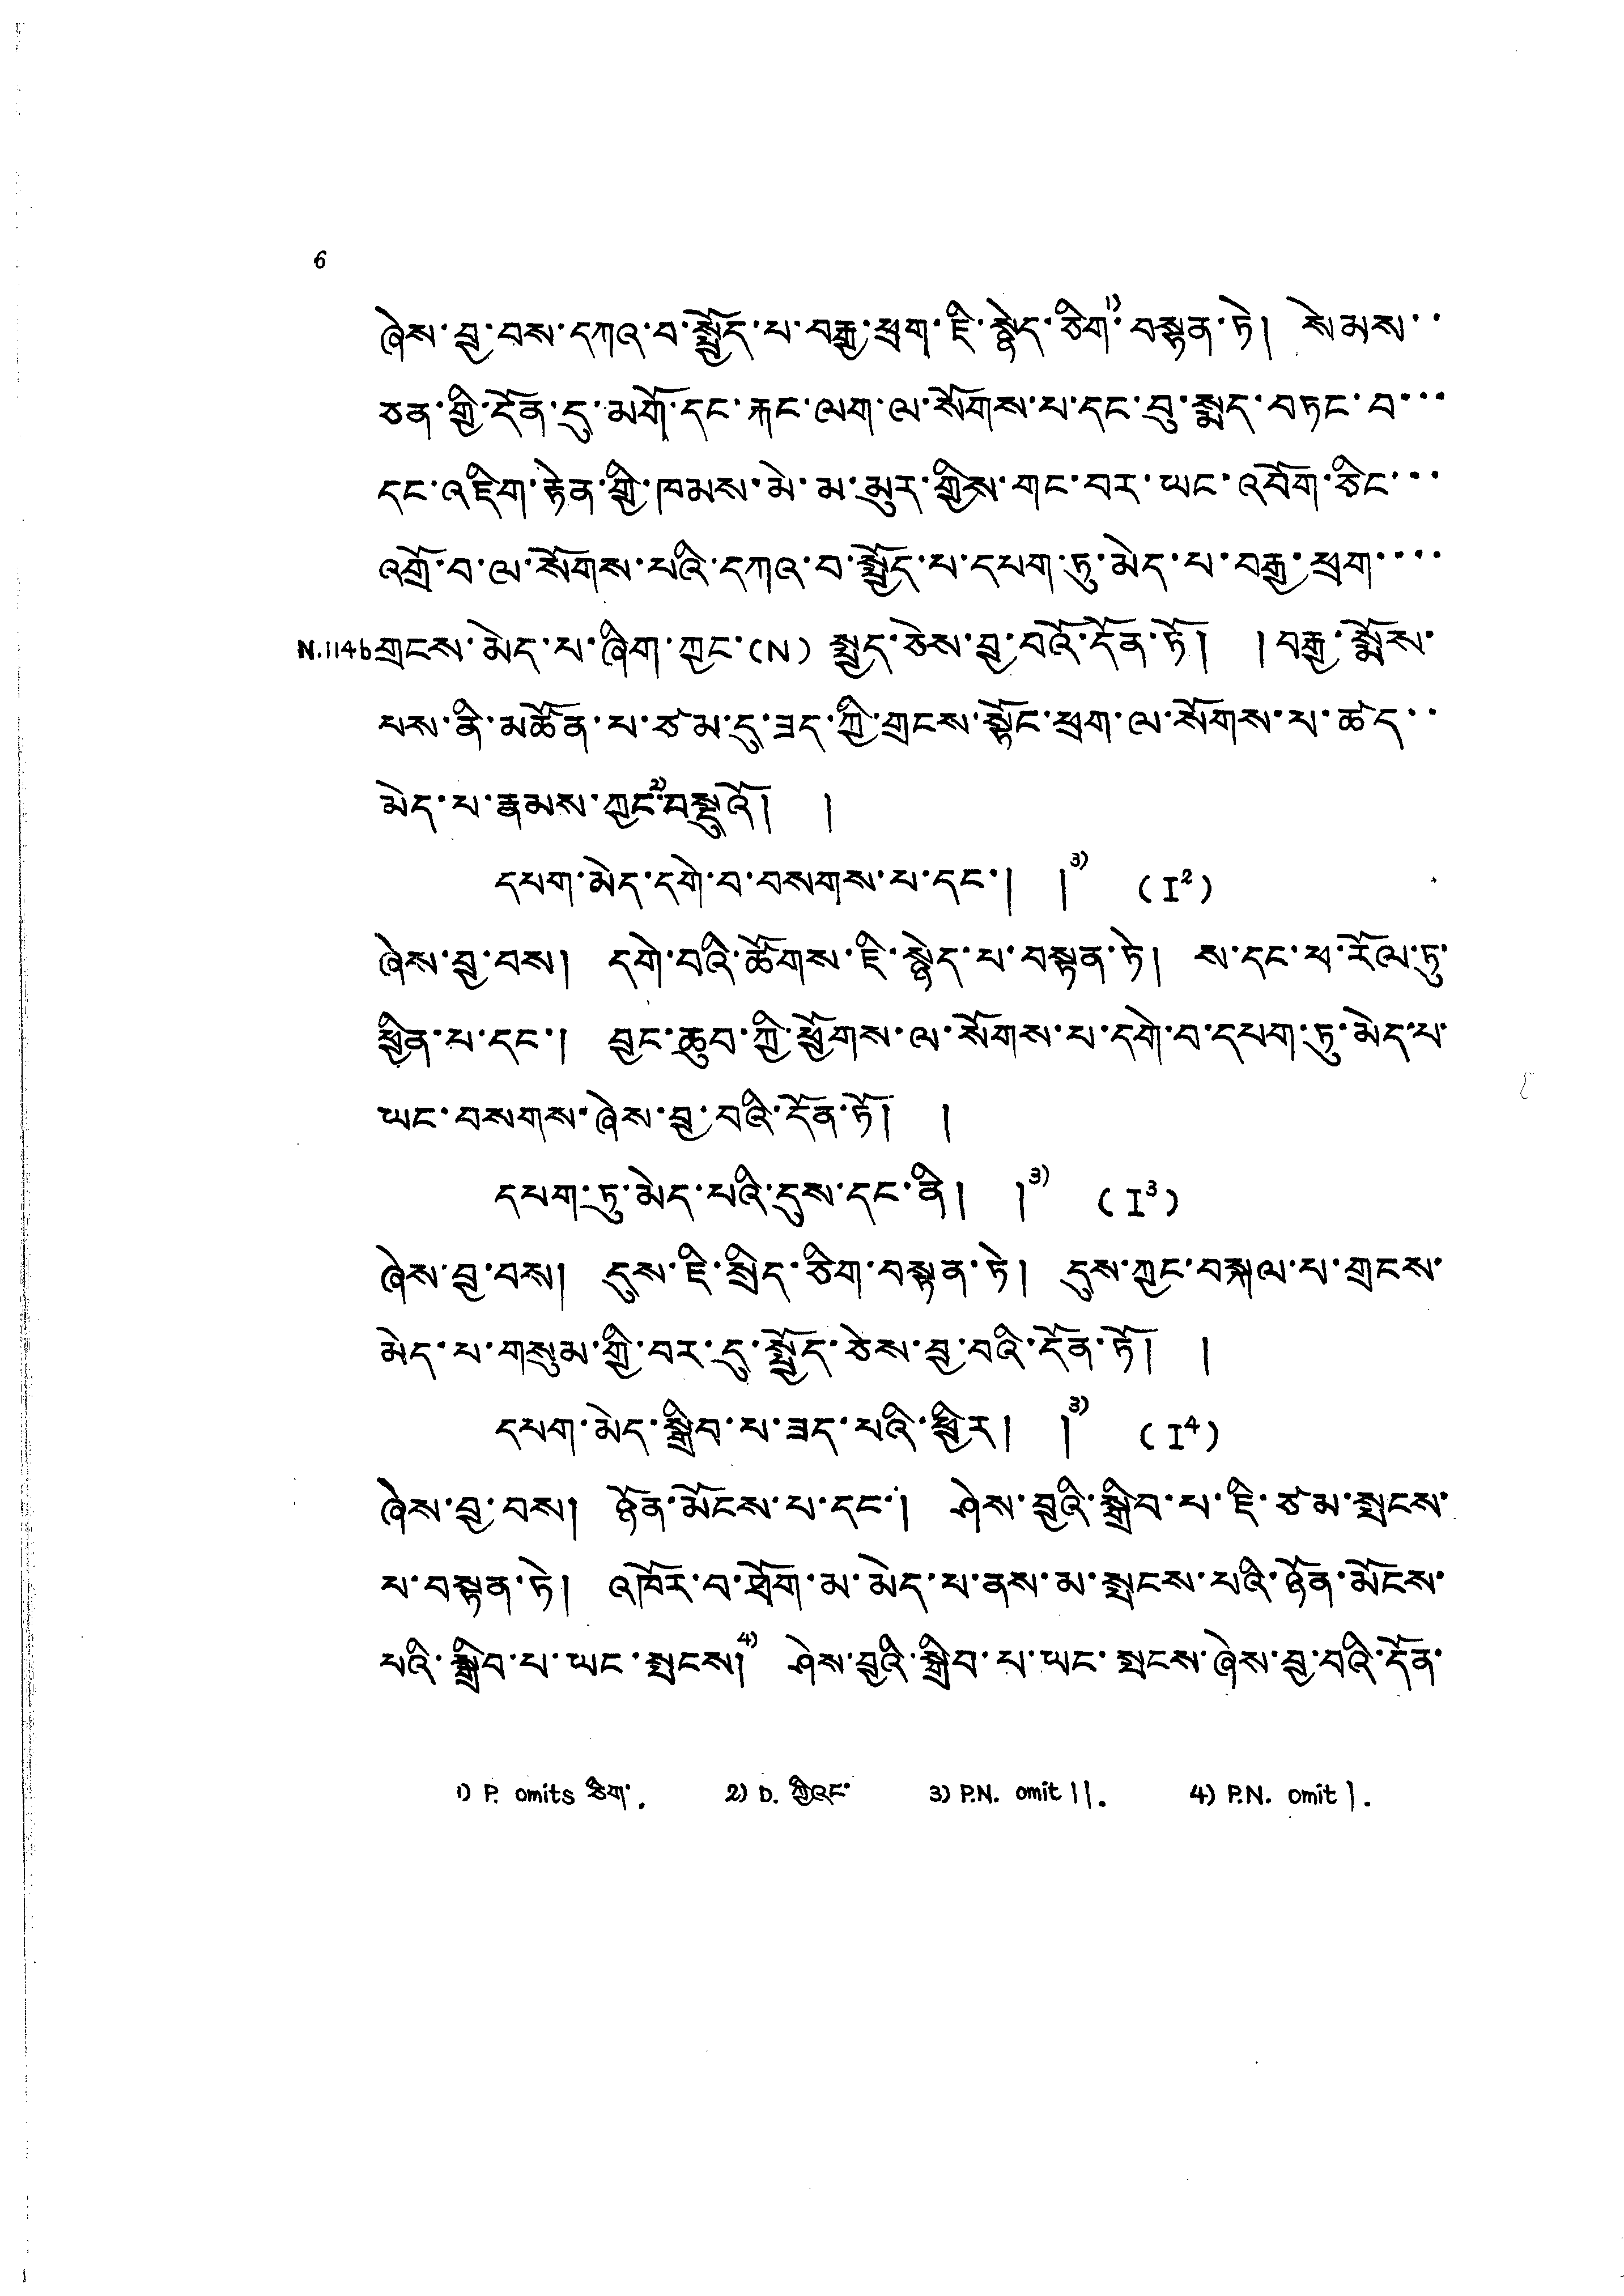 6
ཞེས་བྱ་བས་དཀའ་བ་སྤྱོད་པ་བརྒྱ་ཕྲག་ཇི་སྙེད་ཅིག་1)བསྟན་ཏེ། སེམས་་
ཅན་གྱི་དོན་དུ་མགོ་དང་རྐང་ལག་ལ་སོགས་པ་དང་བུ་སྨད་བཏང་བ་་་
དང་འཇིག་རྟེན་གྱི་ཁམས་མེ་མ་མུར་གྱིས་གང་བར་ཡང་འབོག་ཅིང་་་
འགྲོ་བ་ལ་སོགས་པའི་དཀའ་བ་སྤྱོད་པ་དཔག་ཏུ་མེད་པ་བརྒྱ་ཕྲག་་་་
N.114b གྲངས་མེད་པ་ཞིག་ཀྱང་(N) སྤྱད་ཅེས་བྱ་བའོ་དོན་ཏོ། །བརྒྱ་སྨོས་
པས་ནི་མཚོན་པ་ཙམ་དུ་ཟད་ཀྱི་གྲངས་སྟོང་ཕྲག་ལ་སོགས་པ་ཚད་་
མེད་པ་རྣམས་ཀྱང་2)བསྡུའོ། །
དཔག་མེད་དགེ་བ་བསགས་པ་དང་། །3) (I2)
ཞེས་བྱ་བས། དགེ་བའི་ཚོགས་ཇི་སྙེད་པ་བསྟན་ཏེ། ས་དང་ཕ་རོལ་ཏུ་
ཕྱིན་པ་དང་། བྱང་ཆུབ་ཀྱི་ཕྱོགས་ལ་སོགས་པ་དགེ་བ་དཔག་ཏུ་མེད་པ་
ཡང་བསགས་ཞེས་བྱ་བའི་དོན་ཏོ། །
དཔག་ཏུ་མེད་པའི་དུས་དང་ནི། །3) (I3)
ཞེས་བྱ་བས། དུས་ཇི་སྲིད་ཅིག་བསྟན་ཏེ། དུས་ཀྱང་བསྐལ་པ་གྲངས་
མེད་པ་གསུམ་གྱི་བར་དུ་སྤྱོད་ཅེས་བྱ་བའི་དོན་ཏོ། །
དཔག་མེད་སྒྲིབ་པ་ཟད་པའི་ཕྱིར། །3) (I4)
ཞེས་བྱ་བས། ཉོན་མོངས་པ་དང་། ཤེས་བྱའི་སྒྲིབ་པ་ཇི་ཙམ་སྤངས་
པ་བསྟན་ཏེ། འཁོར་བ་ཐོག་མ་མེད་པ་ནས་མ་སྤངས་པའི་ཉོན་མོངས་
པའི་སྒྲིབ་པ་ཡང་སྤངས།4) ཤེས་བྱའི་སྒྲིབ་པ་ཡང་སྤངས་ཞེས་བྱ་བའི་དོན་
1) P. omits ཅིག་. 2) D. ཀྱིའང་ 3) P.N. omit ། །. 4) P.N. omit །.